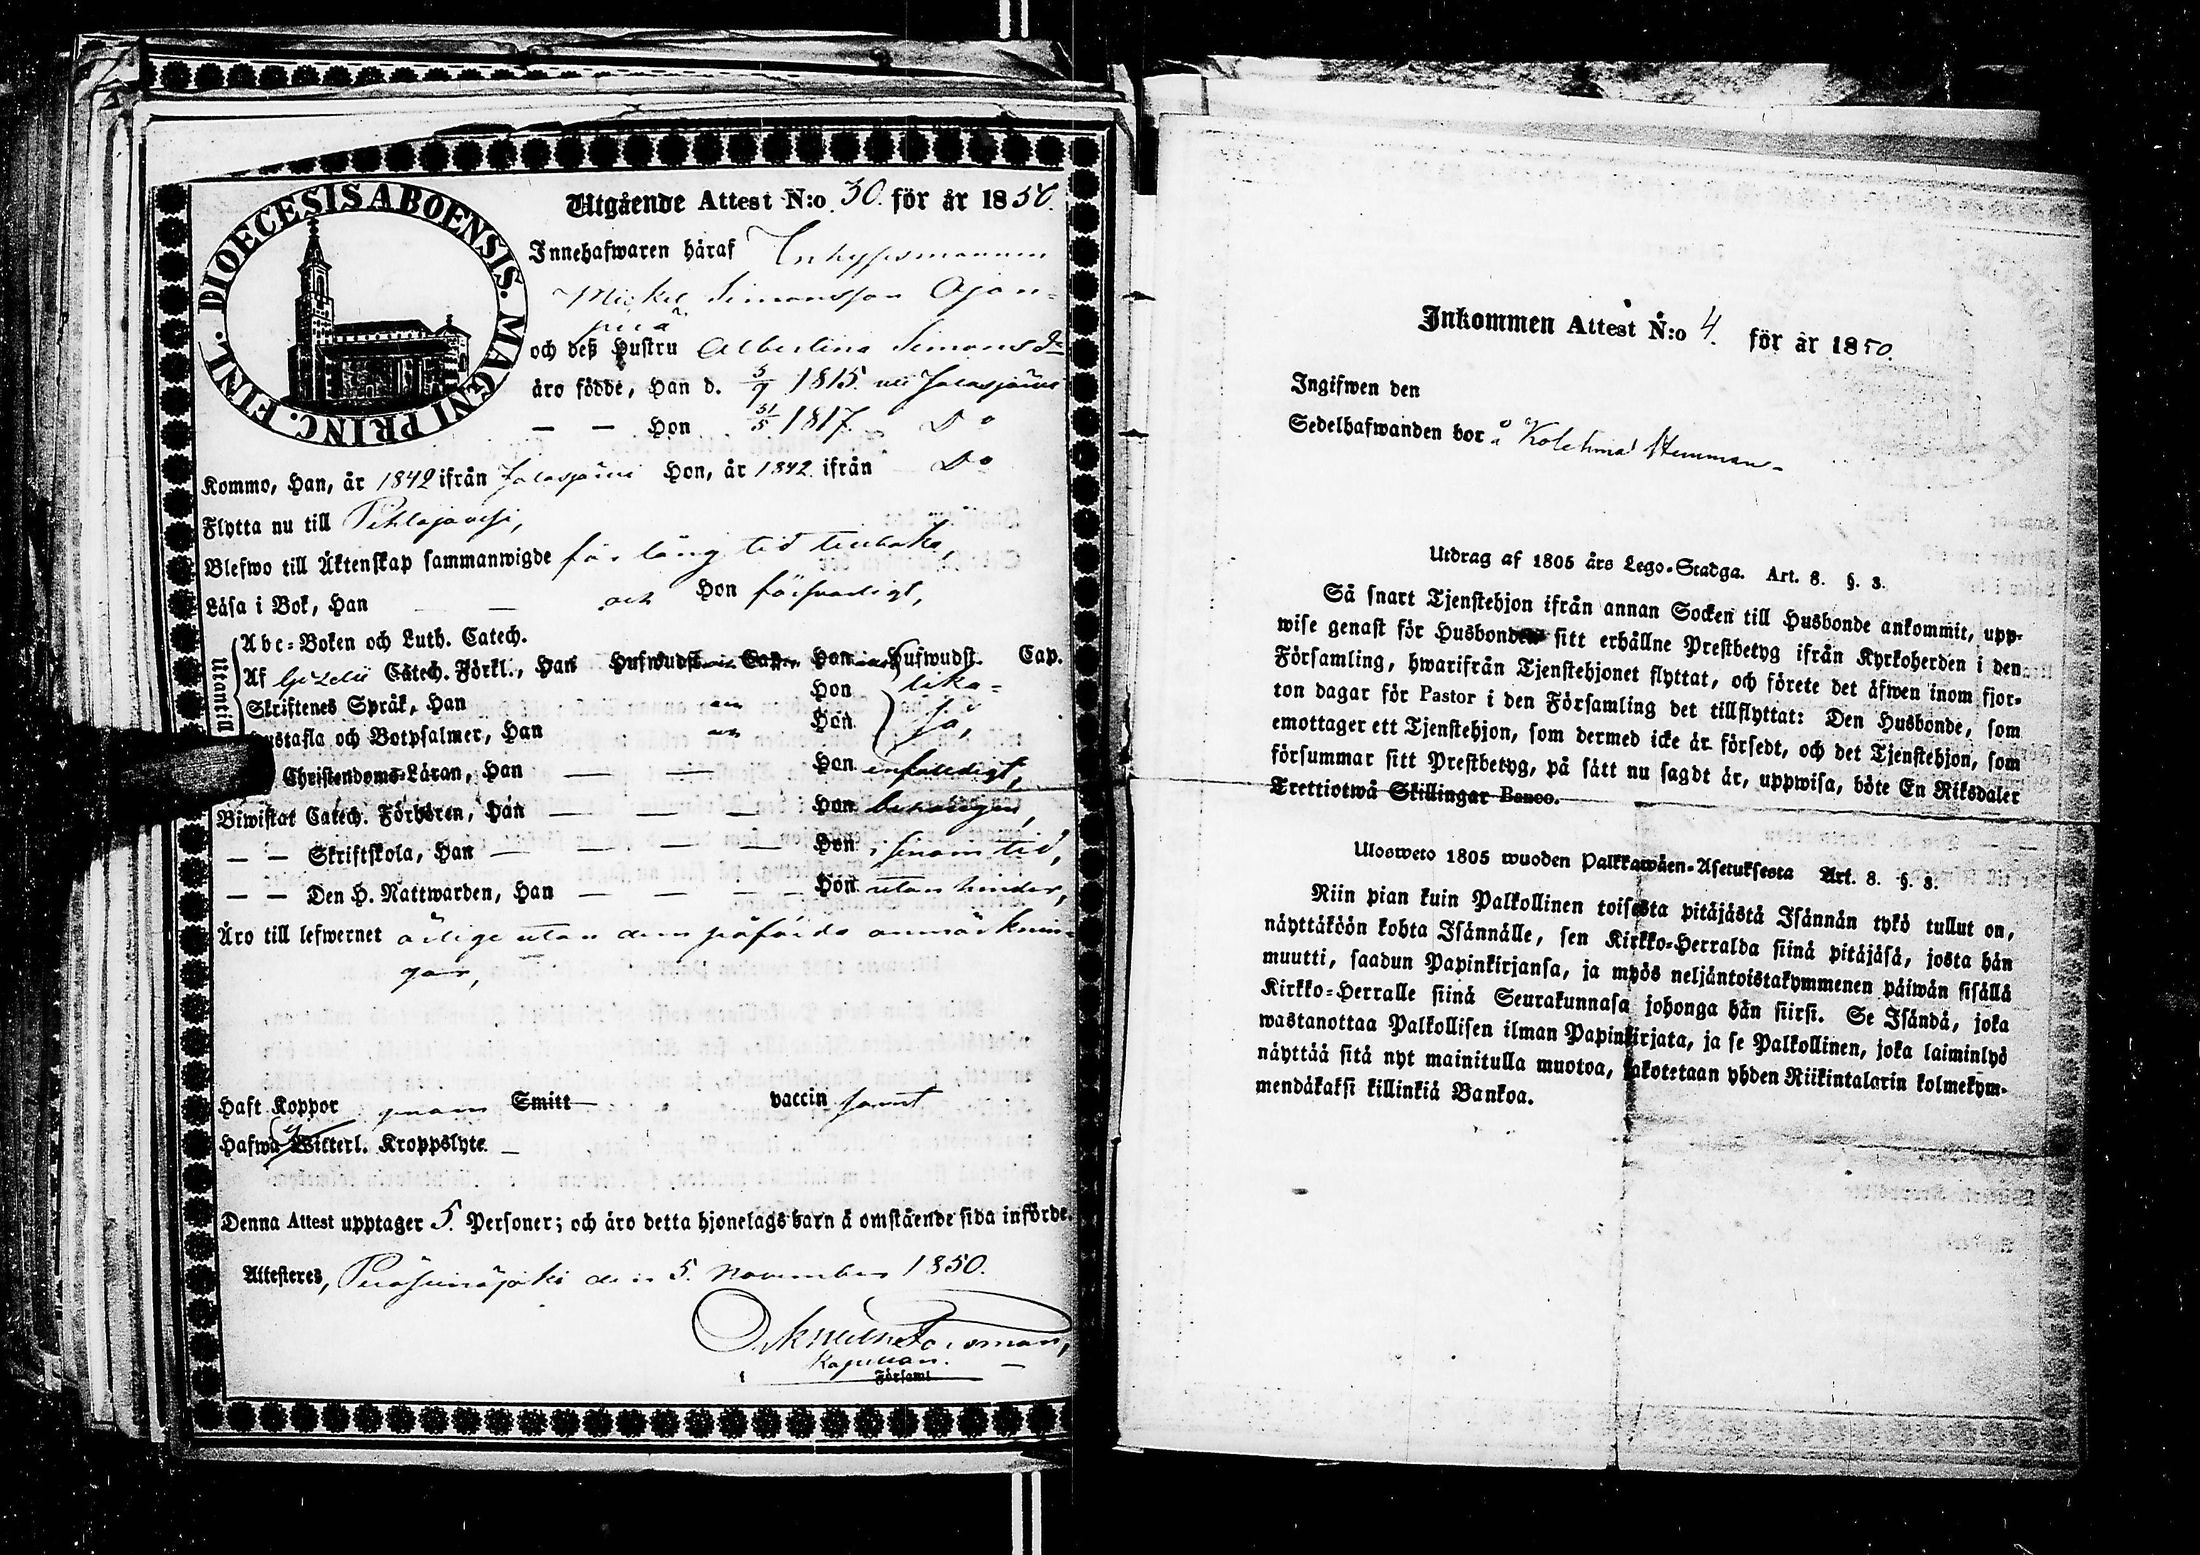 DIOECESIS ABOENSIS. MAGNI PRINC. FINL.
Utgående Attest N:o 30. för år 1850.
Innehafwaren häraf Inhysesmannen
Mickel Simonsson Ojan-
perä
och deß Hustru Albertina Simonsd:r
äro födde, Han d. 5/9 1815. uti Jalasjärvi
— — Hon 31/5 1817. D:o
Kommo, Han, år 1842 ifrån Jalasjärvi Hon, år 1842 ifrån D:o
Flytta nu till Pihlajavesi,
Blefwo till Äktenskap sammanwigde för lång tid tillbaka,
Läsa i Bok, Han — — och Hon försvarligt,
Utantill
Abc-Boken och Luth. Catech.
Af Gezelii Catech. Förkl., Han Hufwudst. Cap. Hon Hufwudst. Cap.
Skriftenes Språk, Han Hon lika-
Hustafla och Botpsalmer, Han Hon så,
Christendoms-Läran, Han — — Hon enfaldigt,
Biwistat Catech. Förhören, Han — — — Hon behörigen,
— — Skriftskola, Han — — — — Hon i sinom tid,
— — Den H. Nattwarden, Han — — — — Hon utan hinder,
Äro till lefwernet ärlige utan dem påförda anmärknin-
gar,
Haft Koppor genom Smitt vaccin samt
Hafwa Witterl. Kroppslyte —
Denna Attest upptager 5. Personer; och äro detta hjonelags barn å omstående sida införde.
Attesteras, Peräseinäjoki den 5. November 1850.
Kapellan.
Församl
Inkommen Attest N:o 4. för år 1850.
Ingifwen den
Sedelhafwanden bor å Kolehmā Hemman-
Utdrag af 1805 års Lego-Stadga. Art. 8. §. 3.
Så snart Tjenstehjon ifrån annan Socken till Husbonde ankommit, upp-
wise genast för Husbonden sitt erhållne Prestbetyg ifrån Kyrkoherden i den
Församling, hwarifrån Tjenstehjonet flyttat, och förete det äfwen inom fjor-
ton dagar för Pastor i den Församling det tillflyttat: Den Husbonde, som
emottager ett Tjenstehjon, som dermed icke är försedt, och det Tjenstehjon, som
försummar sitt Prestbetyg, på sätt nu sagdt är, uppwisa, böte En Riksdaler
Trettiotwå Skillingar Banco.
Ulosweto 1805 wuoden Palkkawäen-Asetuksesta Art. 8. §. 3.
Niin pian kuin Palkollinen toisesta pitäjästä Isännän tykö tullut on,
näyttäköön kohta Isännälle, sen Kirkko-Herralda siinä pitäjäsä, josta hän
muutti, saadun Papinkirjansa, ja myös neljäntoistakymmenen päiwän sisällä
Kirkko-Herralle siinä Seurakunnasa johonga hän siirsi. Se Isändä, joka
wastanottaa Palkollisen ilman Papinkirjata, ja se Palkollinen, joka laiminlyö
näyttää sitä nyt mainitulla muotoa, sakotetaan yhden Riikintalarin kolmekym-
mendäkaksi killinkiä Bankoa.